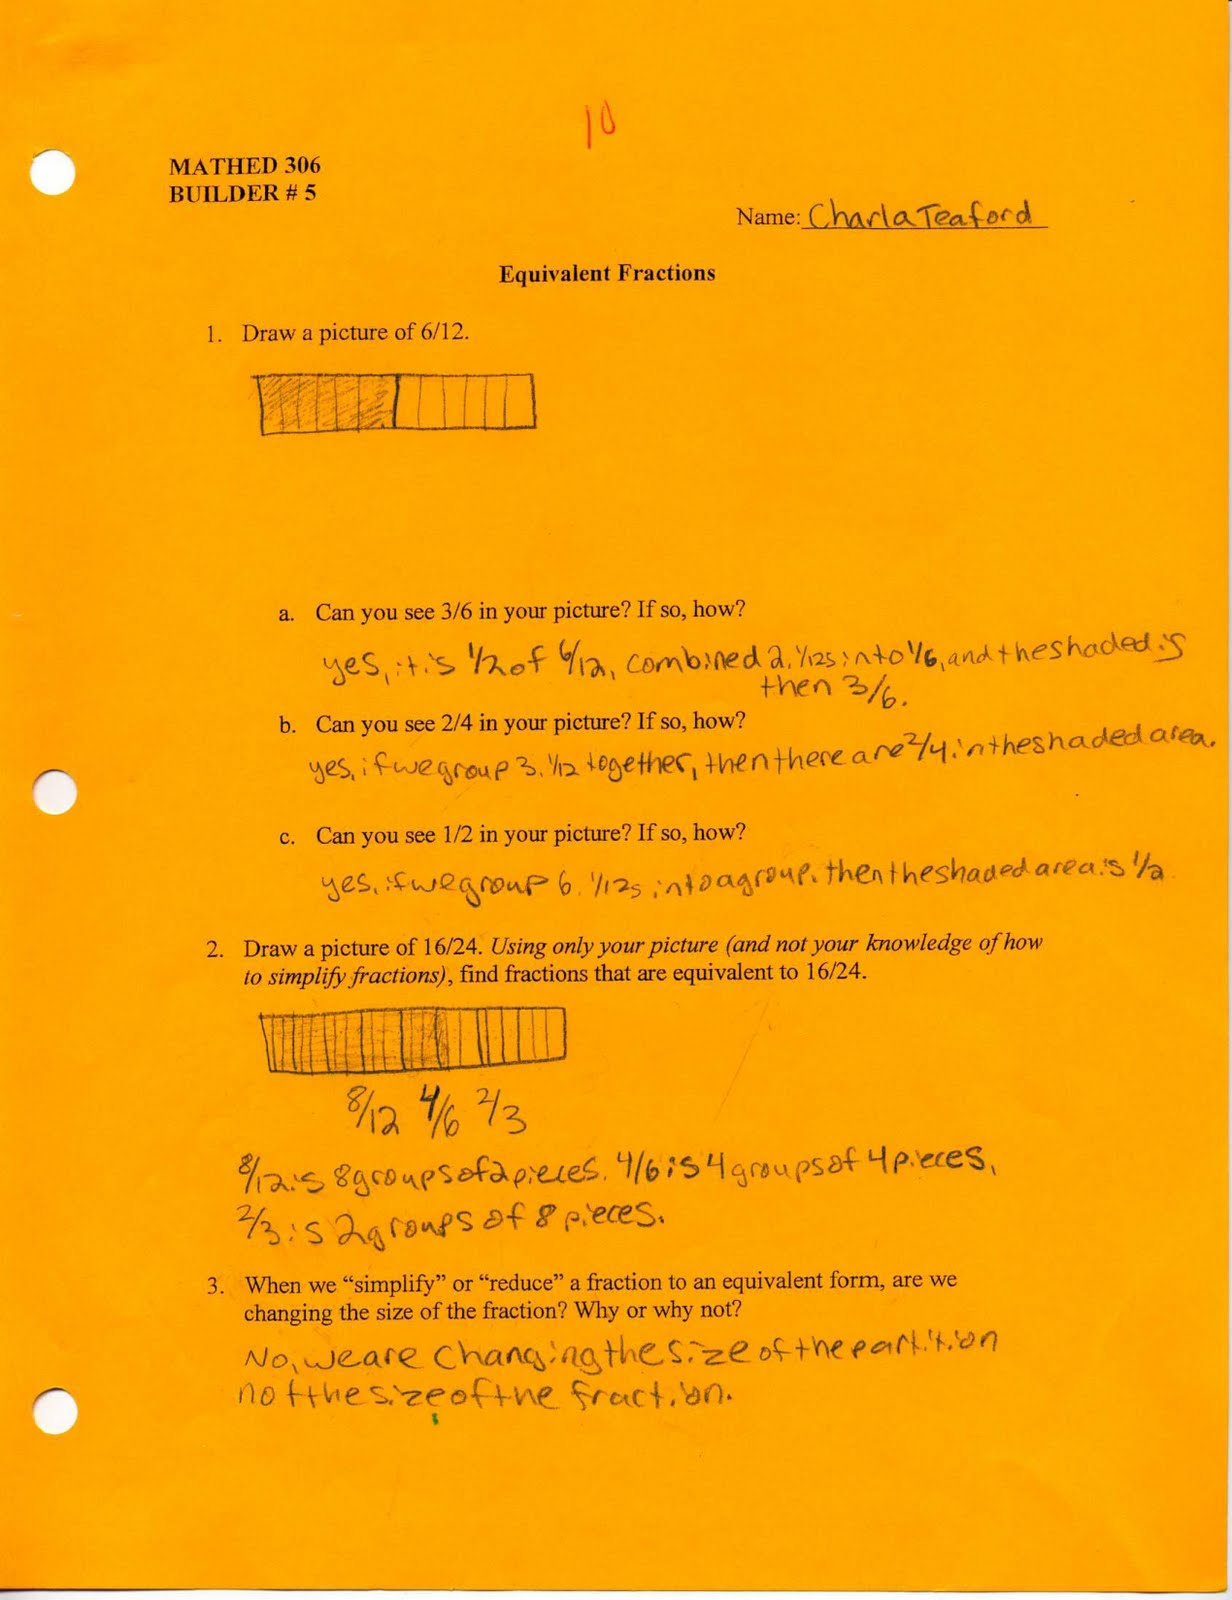 10
MATHED 306
BUILDER # 5
Name: Charla Teaford
Equivalent Fractions
1. Draw a picture of 6/12.
a. Can you see 3/6 in your picture? If so, how?
yes, it is 1/2 of 6/12, combined 2, 1/12s into 1/6, and the shaded is
then 3/6.
b. Can you see 2/4 in your picture? If so, how?
yes, if we group 3, 1/12 together, then there are 2/4 in the shaded area.
c. Can you see 1/2 in your picture? If so, how?
yes, if we group 6, 1/12s into a group, then the shaded area is 1/2
2. Draw a picture of 16/24. Using only your picture (and not your knowledge of how
to simplify fractions), find fractions that are equivalent to 16/24.
8/12 4/6 2/3
8/12 is 8 groups of 2 pieces. 4/6 is 4 groups of 4 pieces,
2/3 is 2 groups of 8 pieces.
3. When we “simplify” or “reduce” a fraction to an equivalent form, are we
changing the size of the fraction? Why or why not?
No, we are changing the size of the partition
not the size of the fraction.